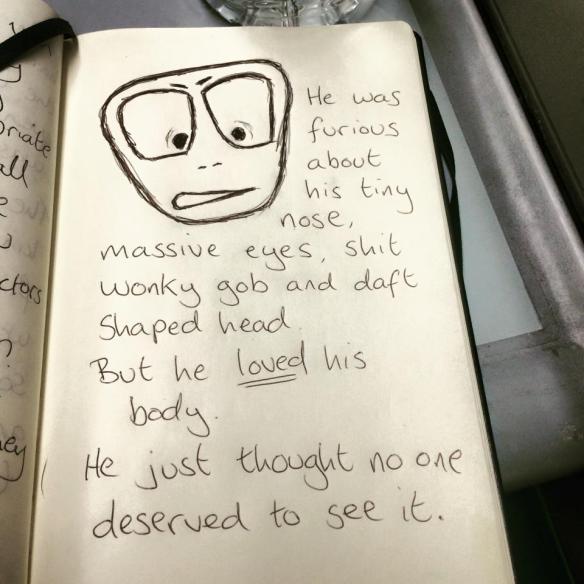 riate
all
ctors
He was
furious
about
his tiny
nose,
massive eyes, shit
wonky gob and daft
shaped head.
But he loved his
body.
He just thought no one
deserved to see it.